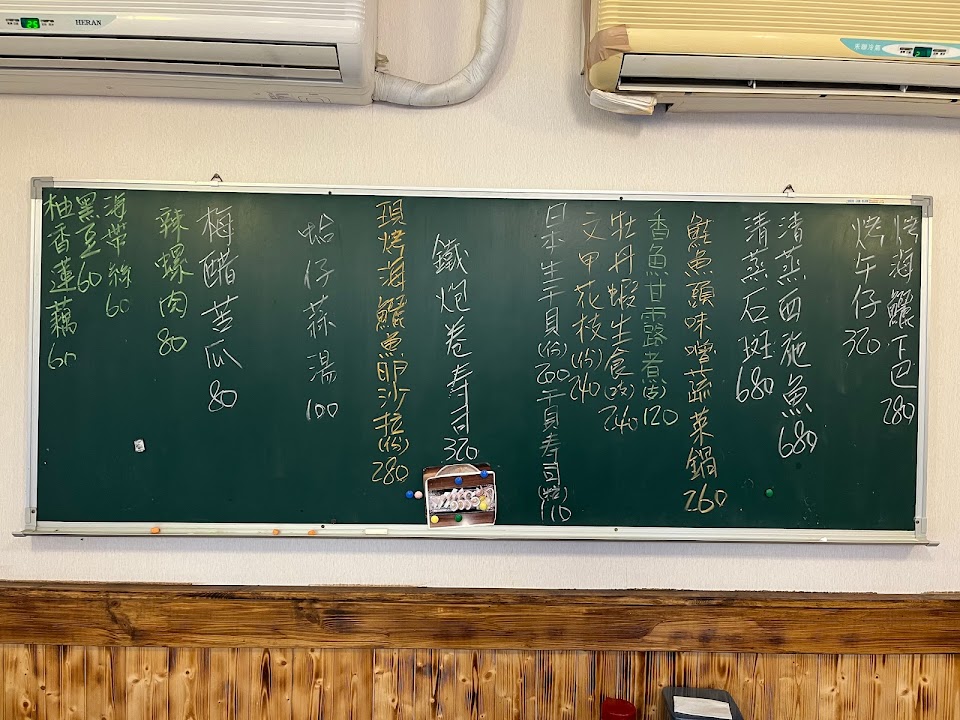 HERAN
25
烤海鱺下巴 280
烤午仔 320
清蒸西施魚 680
清蒸石斑 680
鮭魚頭味噌蔬菜鍋 260
香魚甘露煮 120
牡丹蝦生食(2支) 240
文甲花枝(份) 240
日本生干貝(份) 260 干貝壽司(2粒) 110
鐵炮卷壽司 320
現烤海鱺魚卵沙拉(份) 280
蛤仔蒜湯 100
梅醋苦瓜 80
辣螺肉 80
海帶絲 60
黑豆 60
柚香蓮藕 60